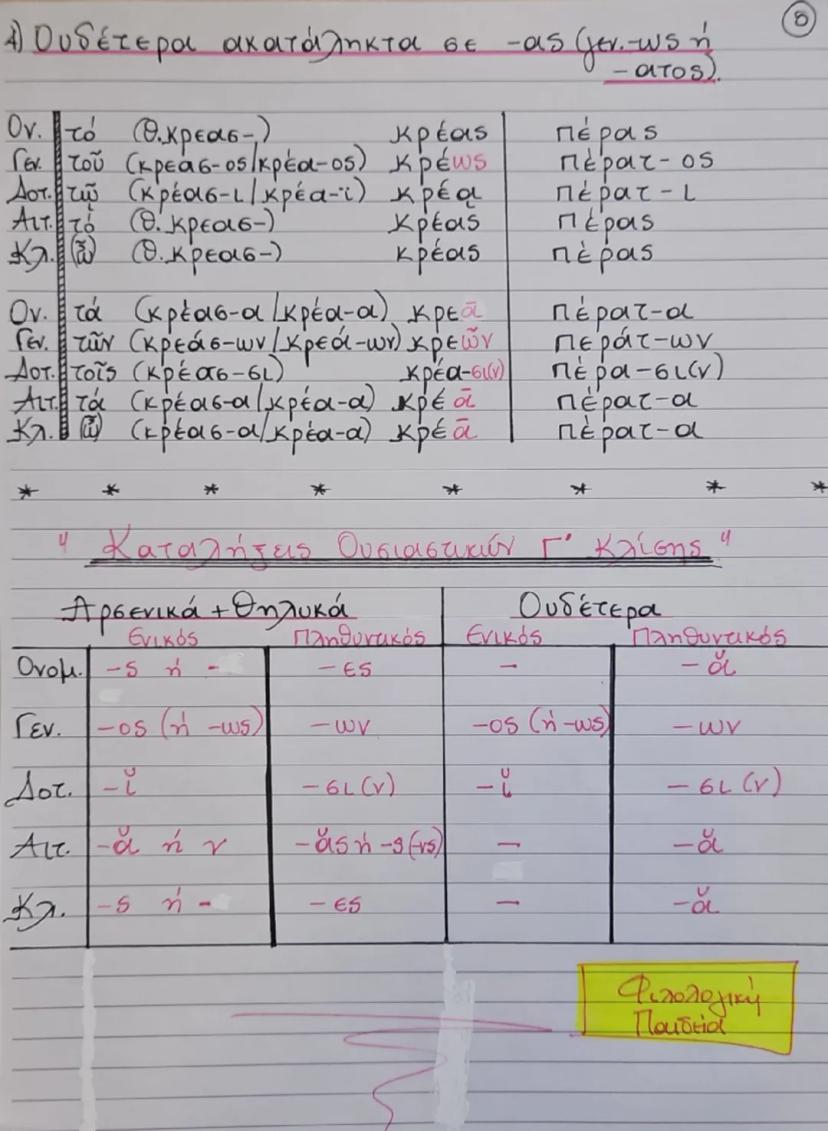 8
4) Ουδέτερα ακατάληκτα σε -ας (γεν.-ως ή
-ατος).
Ον. τό (θ.κρεασ-) κρέας πέρας
Γεν. τοῦ (κρέασ-ος/κρέα-ος) κρέως πέρατ-ος
Δοτ. τῷ (κρέασ-ι/κρέα-ϊ) κρέᾳ πέρατ-ι
Αιτ. τό (θ.κρεασ-) κρέας πέρας
Κλ. (ὦ) (θ.κρεασ-) κρέας πέρας
Ον. τά (κρέασ-α/κρέα-α) κρεᾱ πέρατ-α
Γεν. τῶν (κρεάσ-ων/κρεά-ων) κρεῶν περάτ-ων
Δοτ. τοῖς (κρέασ-σι) κρέα-σι(ν) πέρα-σι(ν)
Αιτ. τά (κρέασ-α/κρέα-α) κρέᾱ πέρατ-α
Κλ. (ὦ) (κρέασ-α/κρέα-α) κρέᾱ πέρατ-α
* * * * * * * *
"Καταλήξεις Ουσιαστικών Γ' Κλίσης"
Αρσενικά + Θηλυκά Ουδέτερα
Ενικός Πληθυντικός Ενικός Πληθυντικός
Ονομ. -ς ή - -ες - -ᾰ
Γεν. -ος (ή -ως) -ων -ος (ή -ως) -ων
Δοτ. -ῐ -σι(ν) -ῐ -σι(ν)
Αιτ. -ᾰ ή ν -ᾰς ή -ς (-νς) - -ᾰ
Κλ. -ς ή - -ες - -ᾰ
Φιλολογική
Παιδεία